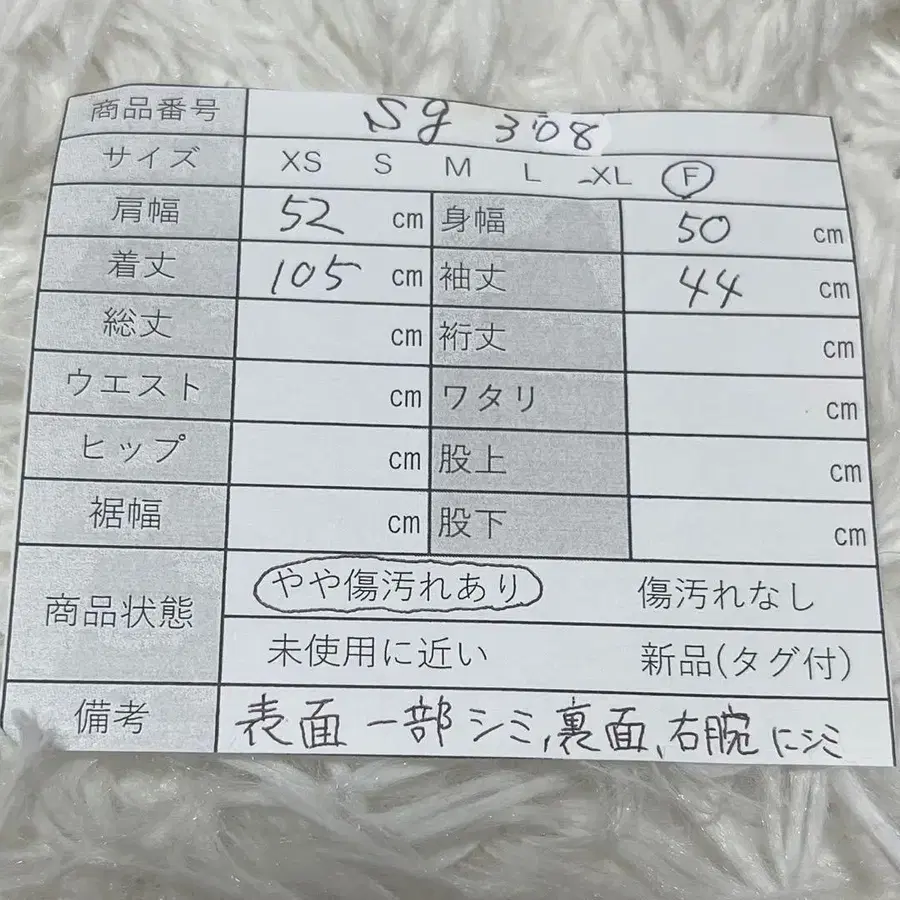 商品番号 Sg 308
サイズ XS S M L XL F
肩幅 52 cm 身幅 50 cm
着丈 105 cm 袖丈 44 cm
総丈 cm 裄丈 cm
ウエスト cm ワタリ cm
ヒップ cm 股上 cm
裾幅 cm 股下 cm
商品状態 やや傷汚れあり 傷汚れなし
未使用に近い 新品(タグ付)
備考 表面一部シミ,裏面、右腕にシミ